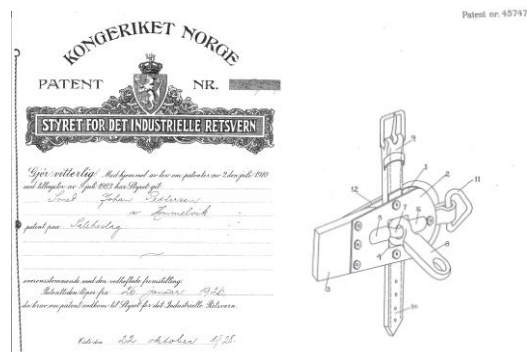 Patent nr. 45747
KONGERIKET NORGE
PATENT NR.
STYRET FOR DET INDUSTRIELLE RETSVERN
Gjör vitterlig: Med hjemmel av lov om patenter av 2 den juli 1910
med tillegslov av 9 juli 1923 har Styret gitt
Smed Johan Pettersen
patent paa
overensstemmende med den vedheftede fremstilling.
Patenttiden löper fra 26 januar 1928
de krav om patent innkom til Styret for det Industrielle Retsvern.
Oslo den 22 oktober 1928.
9
1
2
12
11
3
7
6
4
8
5
10